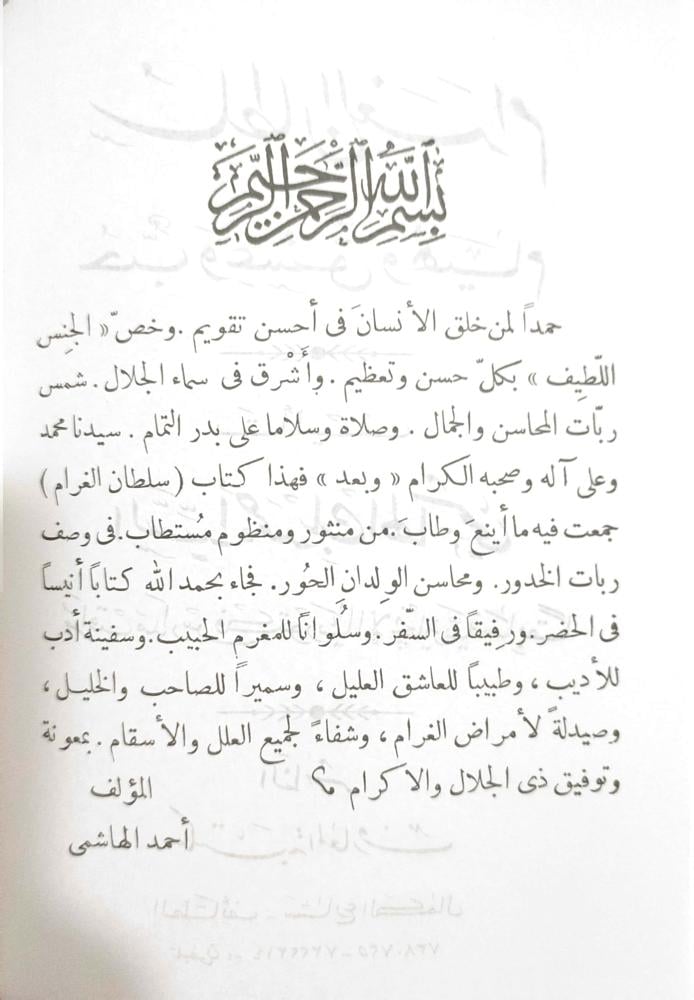 بسم الله الرحمن الرحيم
حمداً لمن خلق الأنسانَ فى أحسن تقويم . وخصّ « الجنِس
اللّطِيف » بكلّ حسن وتعظيم . وأَشْرق فى سماء الجلال . شمس
ربّات المحاسن والجمال . وصلاة وسلاما على بدر التمام . سيدنا محمد
وعلى آله وصحبه الكرام « وبعد » فهذا كتاب ( سلطان الغرام )
جمعت فيه ما أينعَ وطابَ . من منثور ومنظوم مُستطاب . فى وصف
ربات الخدور . ومحاسن الوِلدان الحُور . فجاء بحمد الله كتاباً أنيساً
فى الحضر . ورفيقاً فى السّفر . وسُلُواناً للمغرم الحبيب . وسفينة أدب
للأديب ، وطبيباً للعاشق العليل ، وسميراً للصاحب والخليل ،
وصيدلةً لأمراض الغرام ، وشفاءً لجميع العلل والأسقام . بمعونة
وتوفيق ذى الجلال والاكرام
المؤلف
أحمد الهاشمى